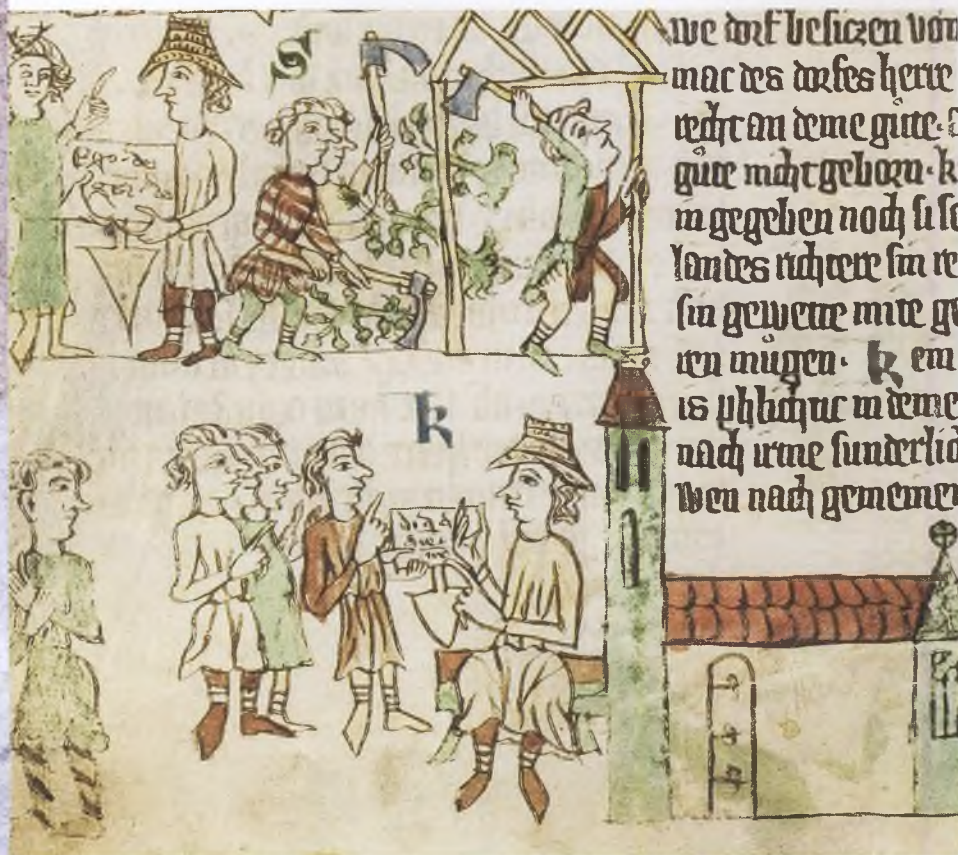 S
Ego de
k
we dorf besiczen von
mac des dorfes herre
recht an deme gute.
gute nicht geborn. k
in gegeben noch si
landes richtere sin re
sin gewette mite ge
ren mugen. k em
is phlichtic in deme
nach irme sunderlic
wen nach gemeine